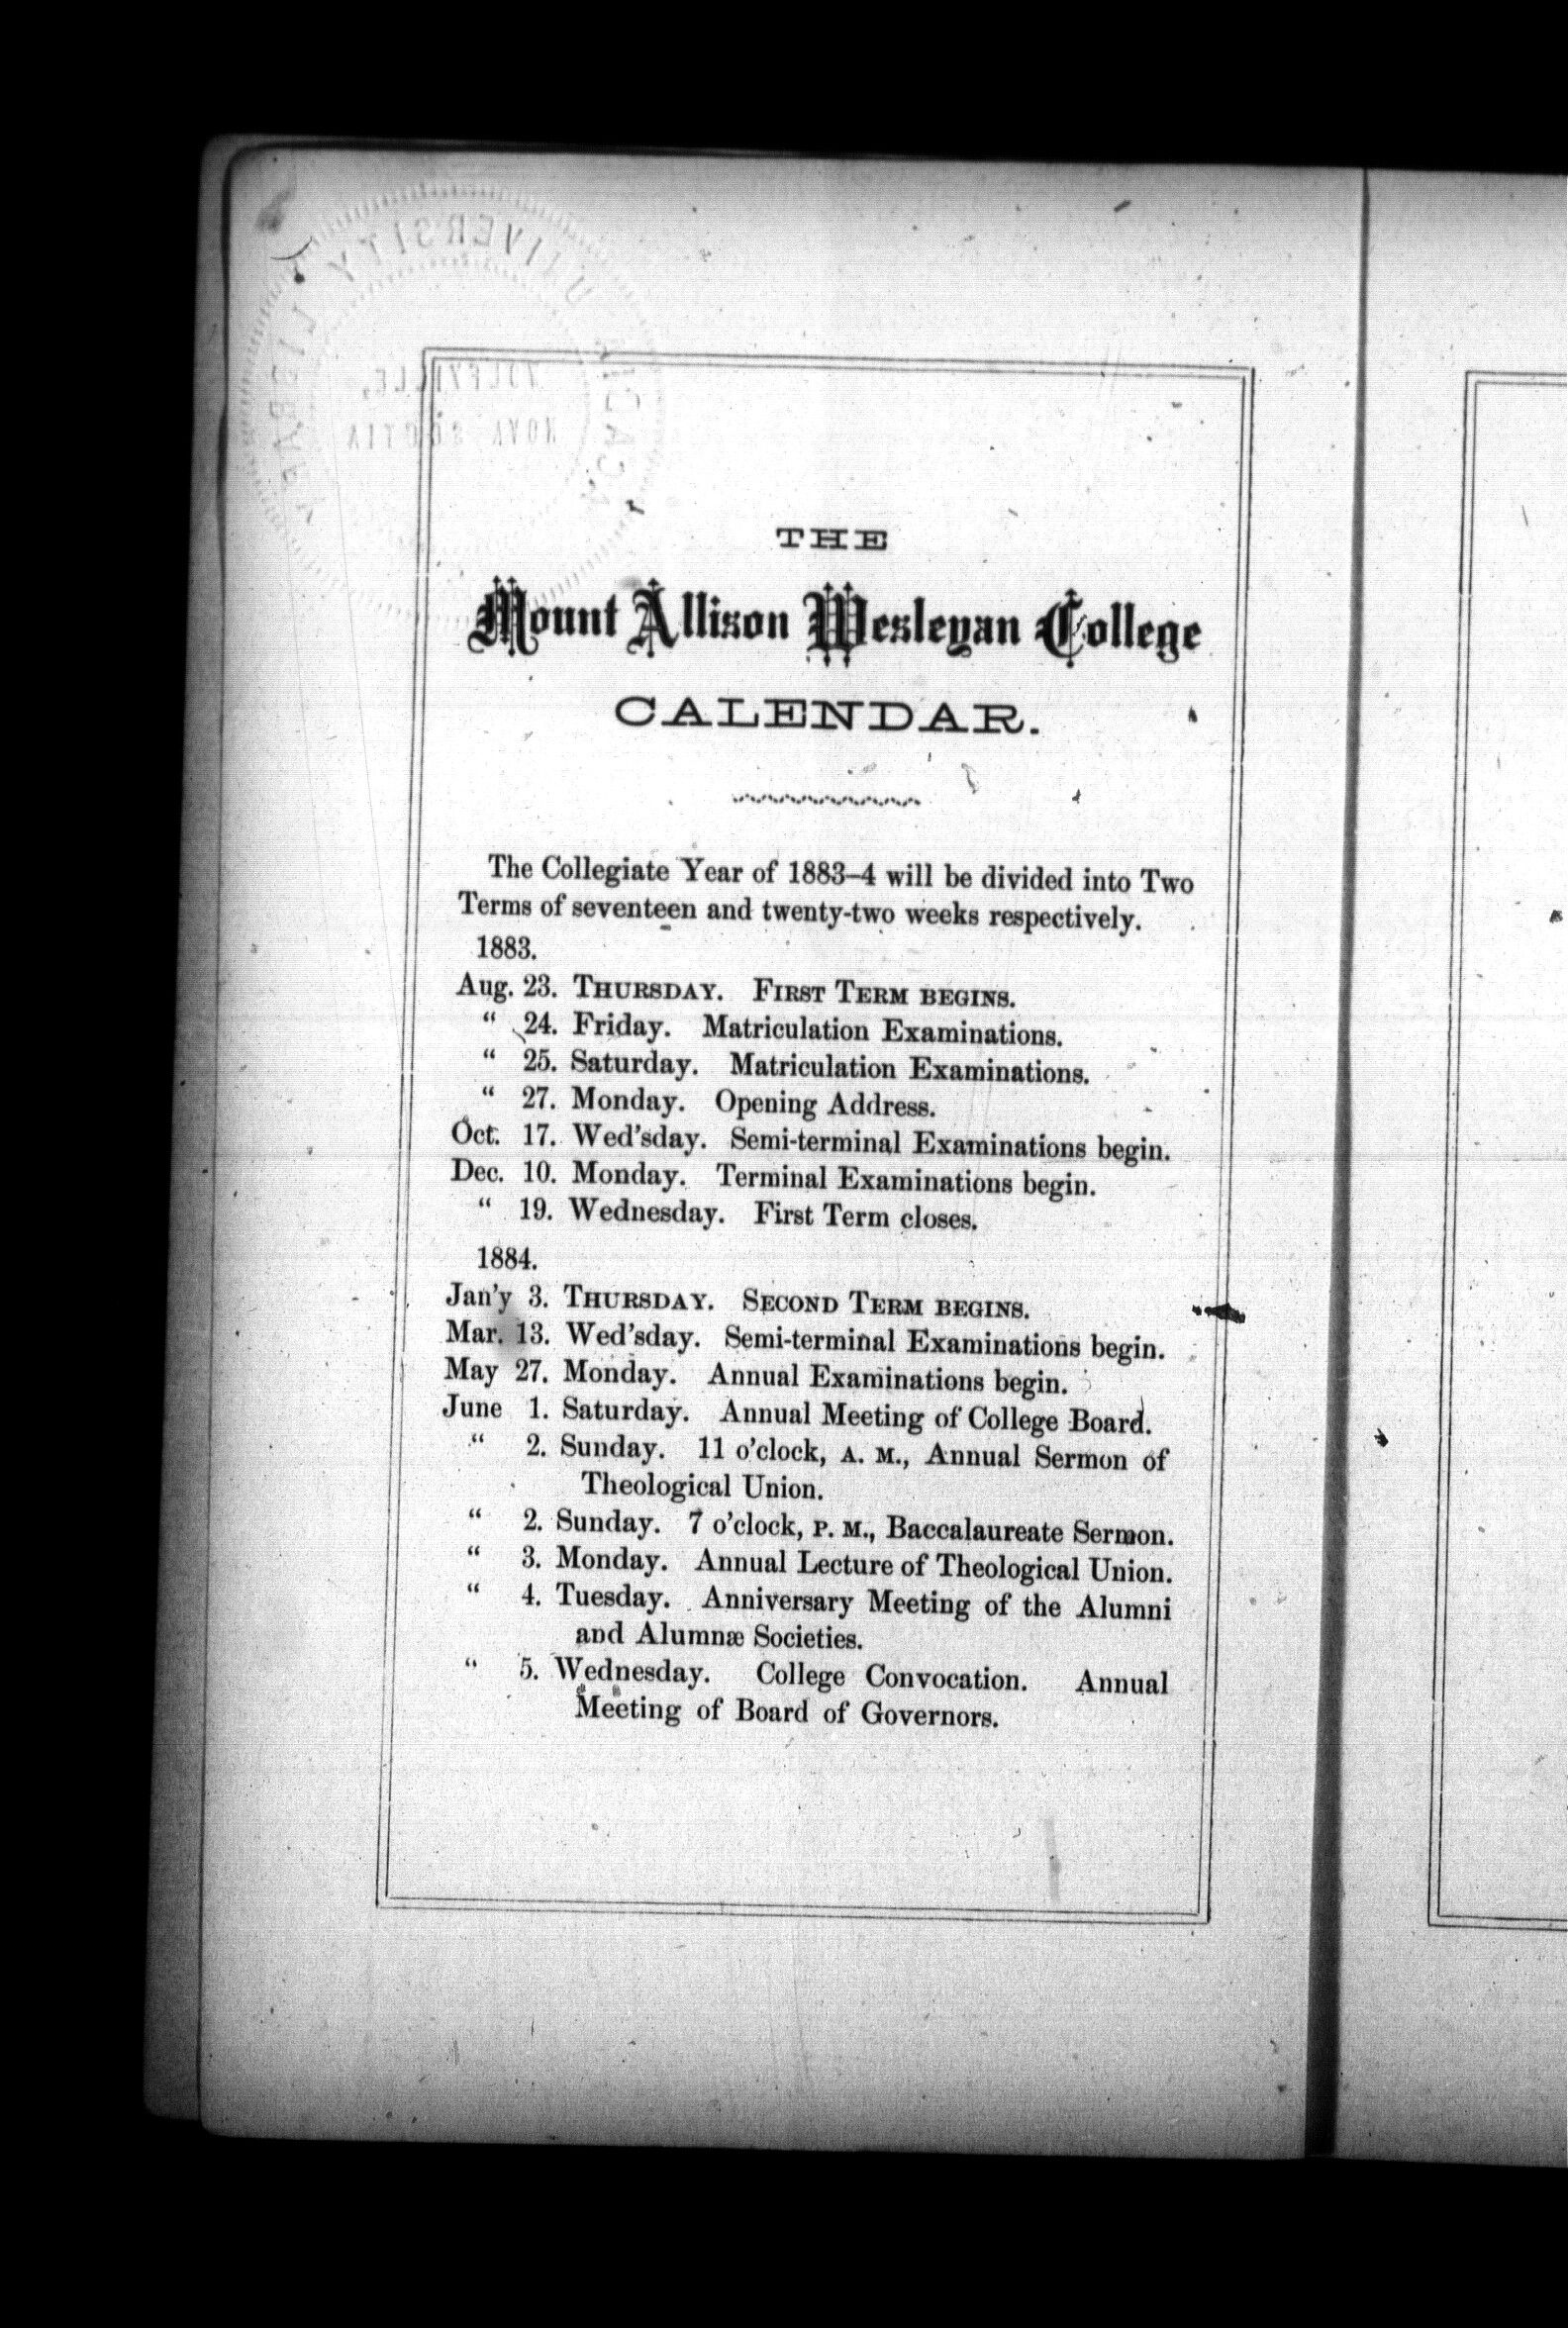 THE
Mount Allison Wesleyan College
CALENDAR.
The Collegiate Year of 1883–4 will be divided into Two
Terms of seventeen and twenty-two weeks respectively.
1883.
Aug. 23. THURSDAY. FIRST TERM BEGINS.
“ 24. Friday. Matriculation Examinations.
“ 25. Saturday. Matriculation Examinations.
“ 27. Monday. Opening Address.
Oct. 17. Wed'sday. Semi-terminal Examinations begin.
Dec. 10. Monday. Terminal Examinations begin.
“ 19. Wednesday. First Term closes.
1884.
Jan'y 3. THURSDAY. SECOND TERM BEGINS.
Mar. 13. Wed'sday. Semi-terminal Examinations begin.
May 27. Monday. Annual Examinations begin.
June 1. Saturday. Annual Meeting of College Board.
“ 2. Sunday. 11 o'clock, A. M., Annual Sermon of
Theological Union.
“ 2. Sunday. 7 o'clock, P. M., Baccalaureate Sermon.
“ 3. Monday. Annual Lecture of Theological Union.
“ 4. Tuesday. Anniversary Meeting of the Alumni
and Alumnæ Societies.
“ 5. Wednesday. College Convocation. Annual
Meeting of Board of Governors.
UNIVERSITY LIBRARY
NOVA SCOTIA